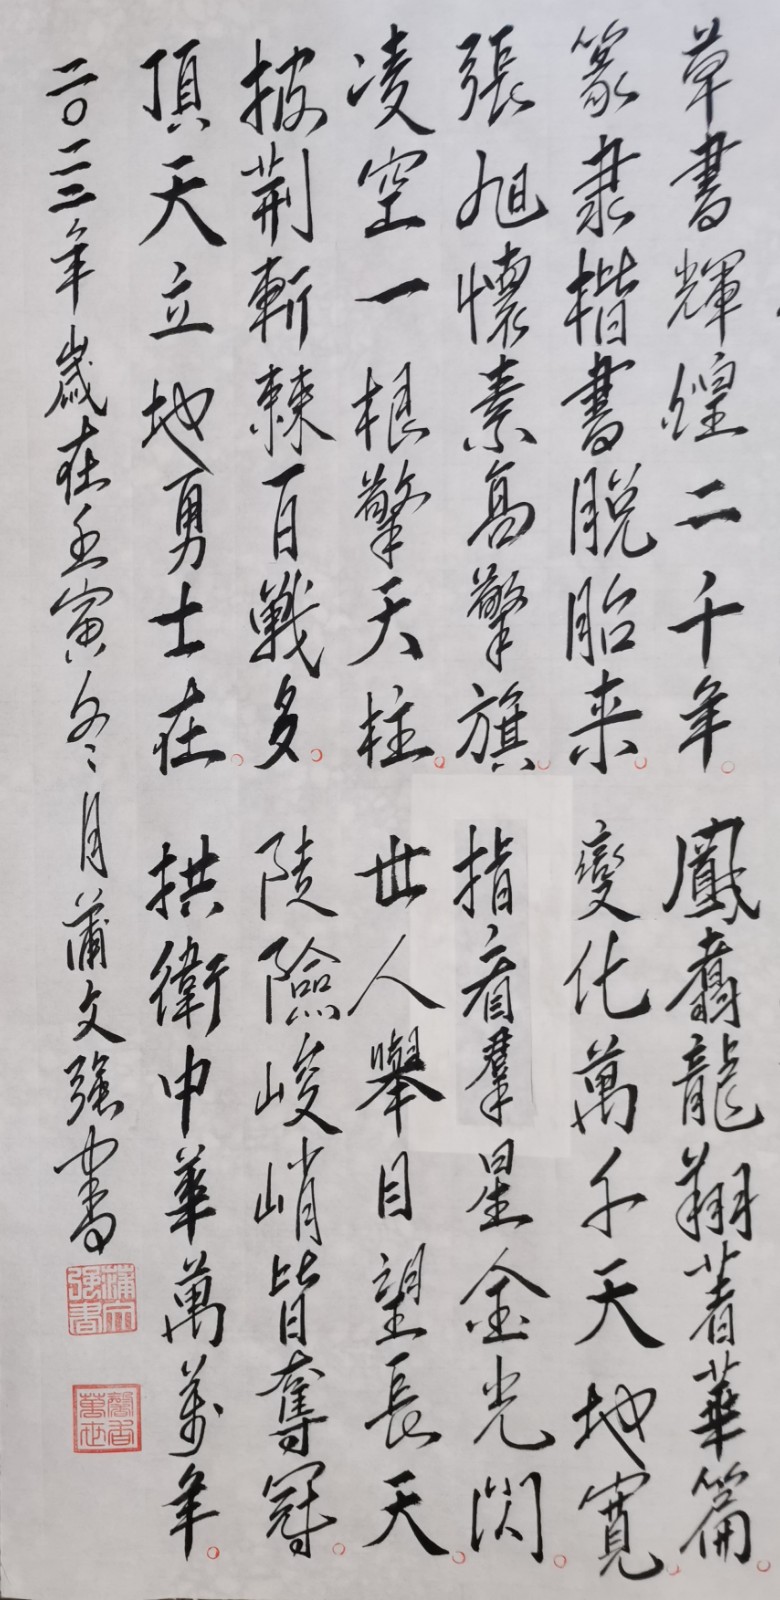 草書輝煌二千年。鳳翥龍翔著華篇。
篆隸楷書脫胎来。變化萬千天地寬。
張旭懷素高擎旗。指看羣星金光閃。
凌空一根擎天柱。世人舉目望長天。
披荆斬棘百戰多。陡險峻峭皆奪冠。
頂天立地勇士在。拱衛中華萬萬年。
二〇二二年歲在壬寅冬月蒲文強書
蒲文强書
馨香萬世